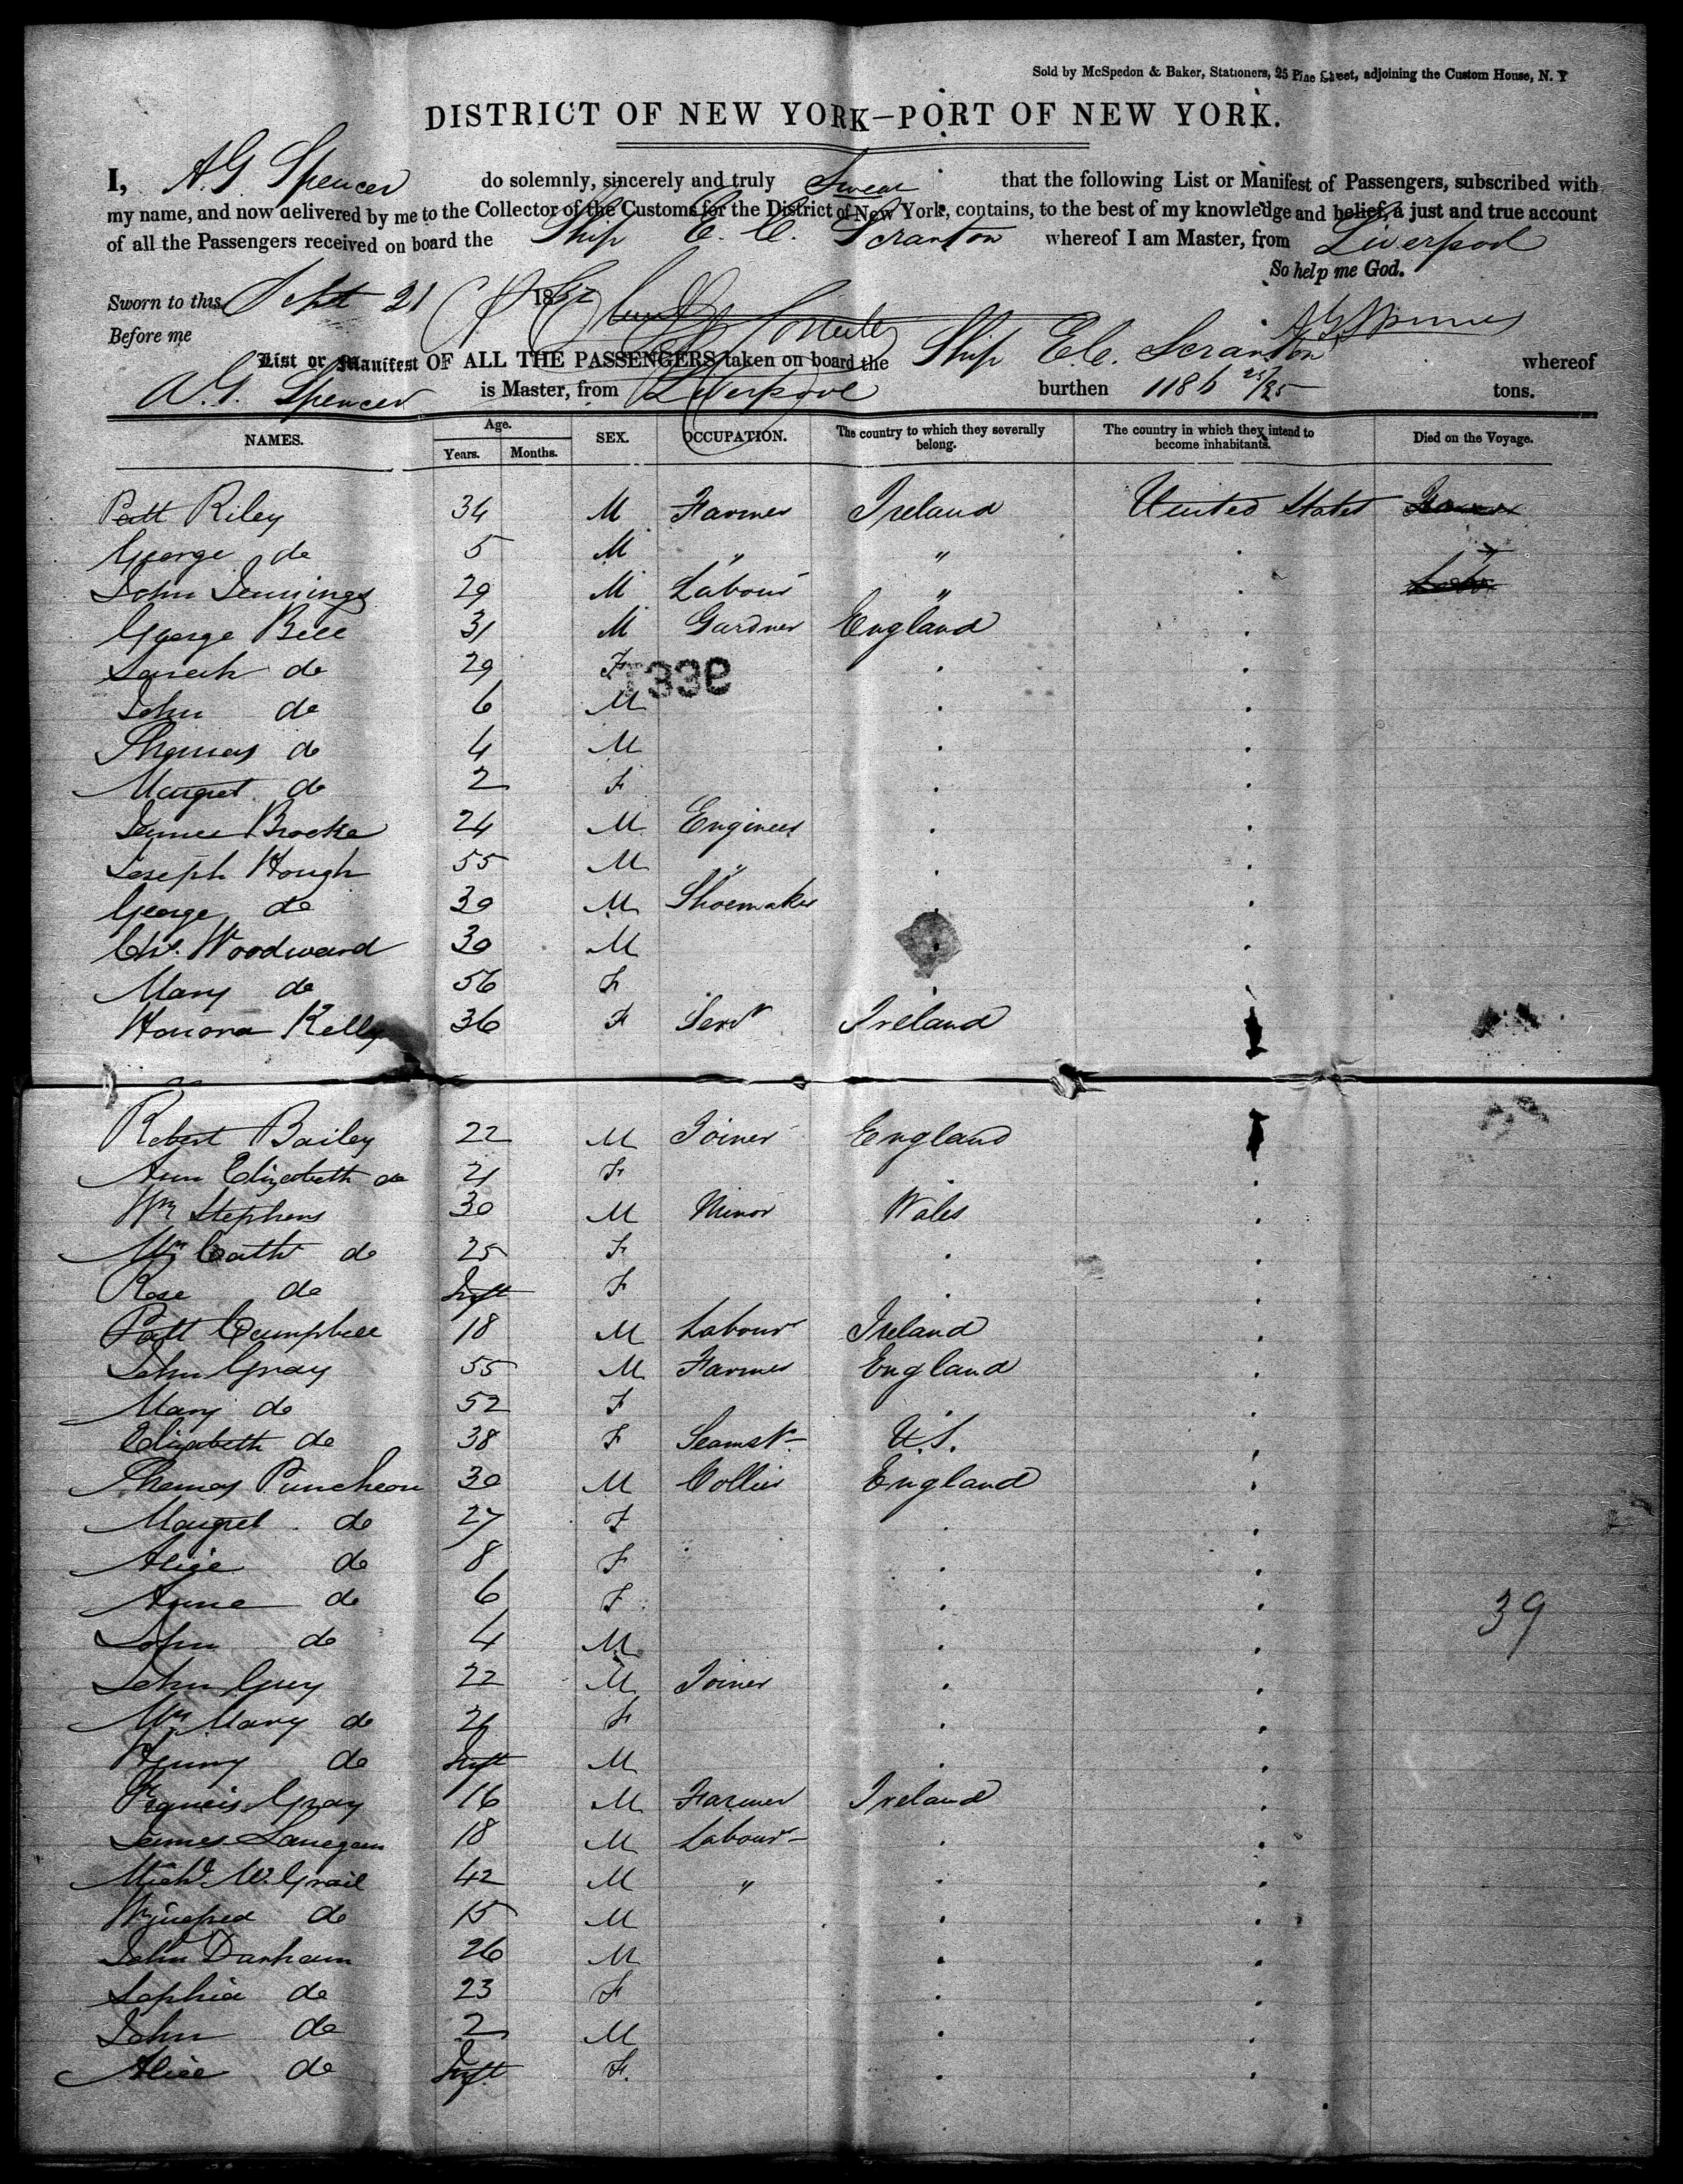 Sold by McSpedon & Baker, Stationers, 25 Pine Street, adjoining the Custom House, N. Y
DISTRICT OF NEW YORK—PORT OF NEW YORK.
I, A. G. Spencer do solemnly, sincerely and truly Swear that the following List or Manifest of Passengers, subscribed with
my name, and now delivered by me to the Collector of the Customs for the District of New York, contains, to the best of my knowledge and belief, a just and true account
of all the Passengers received on board the Ship E. C. Scranton whereof I am Master, from Liverpool
So help me God.
Sworn to this Sept 21 1852
Before me
List or Manifest OF ALL THE PASSENGERS taken on board the Ship E. C. Scranton whereof
A. G. Spencer is Master, from Liverpool burthen 1186 25/95 tons.
NAMES. Age. Years. Months. SEX. OCCUPATION. The country to which they severally belong. The country in which they intend to become inhabitants. Died on the Voyage.
Patt Riley 34 M Farmer Ireland United States
George do 5 M " "
John Jennings 29 M Labour "
George Bell 31 M Gardner England
Sarah do 29 F
1339
John do 6 M
Thomas do 4 M
Margret do 2 F
James Brocke 24 M Engineer
Joseph Hough 55 M "
George do 30 M Shoemaker
Chs. Woodward 30 M
Mary do 56 F
Honora Kelly 36 F Servt Ireland
Robert Bailey 22 M Joiner England
Ann Elizabeth do 21 F
Wm Stephens 30 M Minor Wales
Mrs Cathr do 25 F
Rose do Inft F
Patt Campbell 18 M Labour Ireland
John Gray 55 M Farmer England
Mary do 52 F
Elizabeth do 38 F Seamstr U.S.
Thomas Puncheon 30 M Collier England
Margret do 27 F
Alice do 8 F
Anne do 6 F
39
John do 4 M
John Grey 22 M Joiner
Mrs Mary do F
Henry do Inft M
Francis Gray 16 M Farmer Ireland
James Lanegan 18 M Labour
Michl McGrail 42 M "
Winefred do 15 M
John Darham 26 M
Sophia do 23 F
John do 2 M
Alice do Inft F.